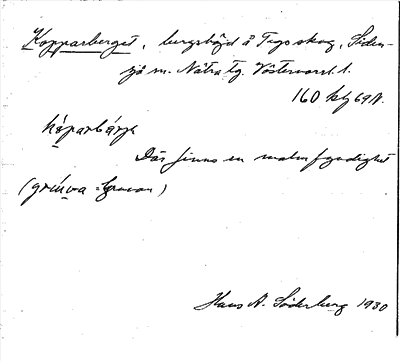 Kopparberget, bergshöjd å Tegsskog, Siden-
sjö m. Nätra tg. Västernorrl. l.
160 kbg 69 N.
kåparbärje
Där finns en malmfyndighet
(gruva = Gruvan)
Hans A. Söderberg 1930